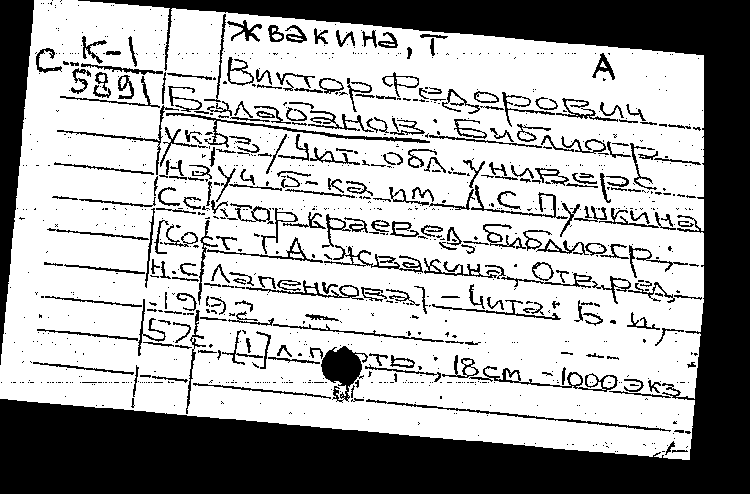 Жвакина, Т
А
С К-1
5891
Виктор Федорович
Балабанов: Библиогр.
указ / Чит. обл. универс.
науч. б-ка им. А.С. Пушкина
Сектор краевед. библиогр.;
[Сост. Т.А. Жвакина; Отв. ред.
Н.С. Лапенкова] - Чита: Б. и.,
1992. -
57с., [1] л. портр.; 18 см. - 1000 экз